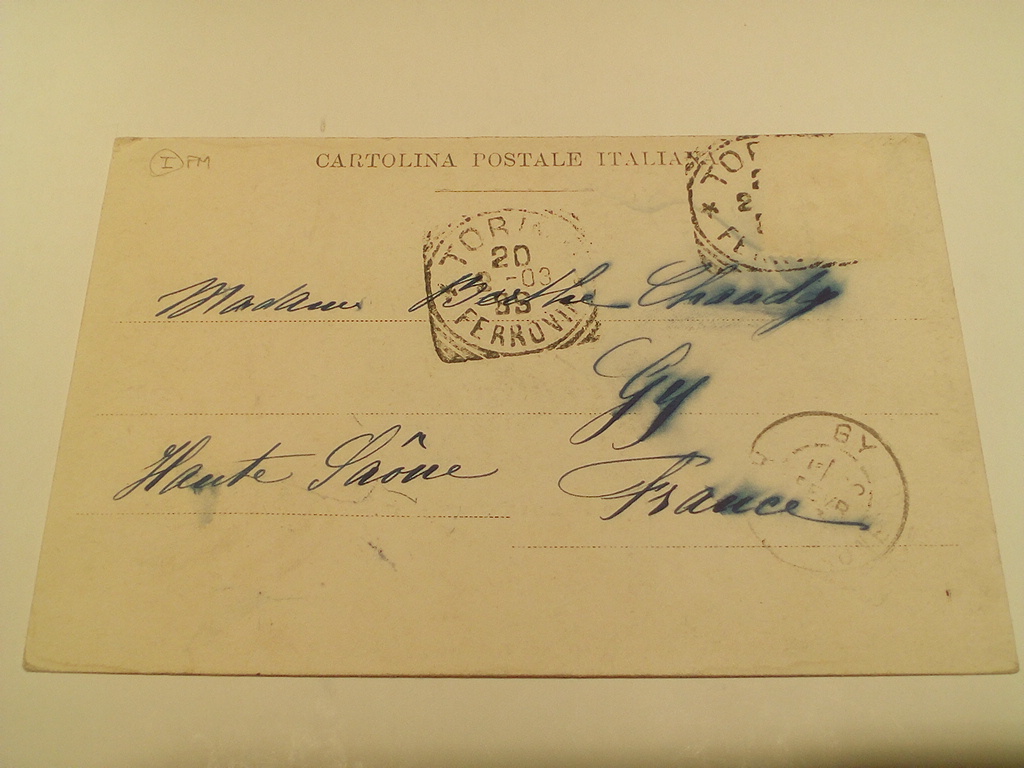 I FM
CARTOLINA POSTALE ITALIANA
TOR
FER
TORI
20
-03
FERROVIA
Madame Berthe Chaudy
Gy
Haute Saône
France
GY